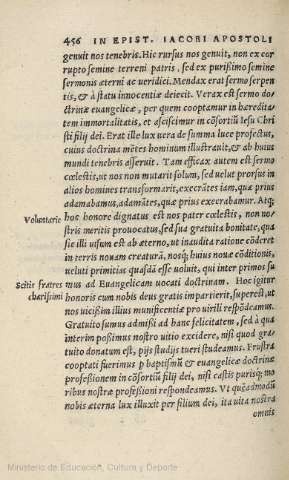 456 IN EPIST. IACOBI APOSTOLI
genuit nos tenebris. Hic rursus nos genuit, non ex cor
rupto semine terreni patris, sed ex purißimo semine
sermonis æterni ac veridici. Mendax erat sermo serpen
tis, & à statu innocentiæ deiecit. Verax est sermo do
ctrinæ euangelicæ, per quem cooptamur in hæredita
tem immortalitatis, et asciscimur in cõsortiũ Iesu Chri
sti filij dei. Erat ille lux vera de summa luce profectus,
cuius doctrina mẽtes hominum illustrauit, & ab huius
mundi tenebris asseruit. Tam efficax autem est sermo
cœlestis, ut nos non mutarit solum, sed uelut prorsus in
alios homines transformarit, execrãtes iam, quæ prius
adamabamus, adamãtes, quæ prius execrabamur. Atq;
hoc honore dignatus est nos pater cœlestis, non no=
Voluntarie
stris meritis prouocatus, sed sua gratuita bonitate, quia
sic illi uisum est ab æterno, ut inaudita ratione cõderet
in terris nouam creaturã, nosq; huius nouæ cõditionis,
ueluti primitias quasdã esse uoluit, qui inter primos su
mus ad Euangelicam uocati doctrinam. Hoc igitur
Scitis fratres
charißimi
honoris cum nobis deus gratis impartierit, superest, ut
nos uicißim illius munificentiæ pro uirili respõdeamus.
Gratuito sumus admißi ad hanc felicitatem, sed à qua
interim poßimus nostro uitio excidere, nisi quod gra=
tuito donatum est, pijs studijs tueri studeamus. Frustra
cooptati fuerimus p baptismũ & euangelicæ doctrinæ
professionem in cõsortiũ filij dei, nisi castis purisq; mo
ribus nostræ professioni respondeamus. Vt quẽadmodũ
nobis æterna lux illuxit per filium dei, ita uita nostra
omnis
Ministerio de Educación, Cultura y Deporte